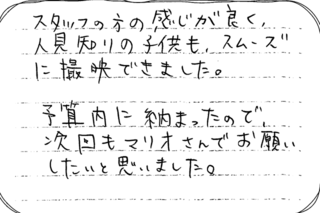 スタッフの方の感じが良く、
人見知りの子供も、スムーズ
に撮映できました。
予算内に納まったので、
次回もマリオさんでお願い
したいと思いました。